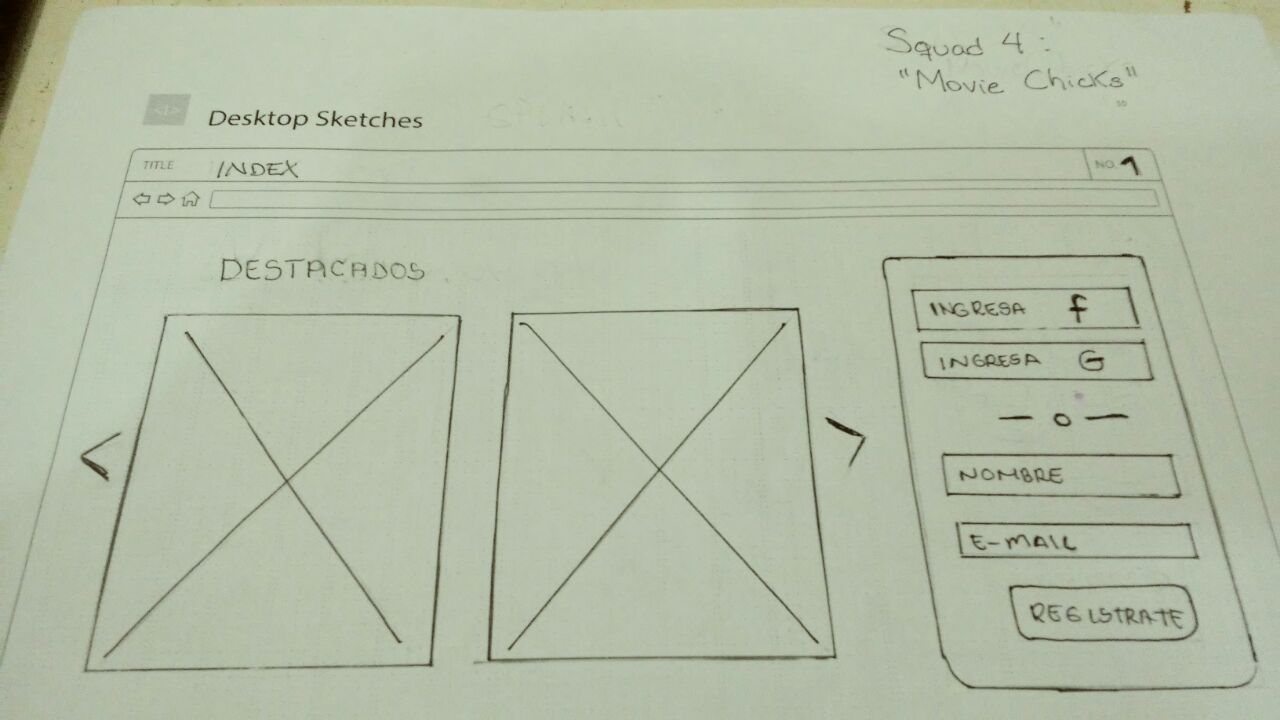 Squad 4:
"Movie Chicks"
Desktop Sketches
TITLE INDEX
NO. 1
DESTACADOS
INGRESA f
INGRESA G
— o —
NOMBRE
E-MAIL
REGISTRATE